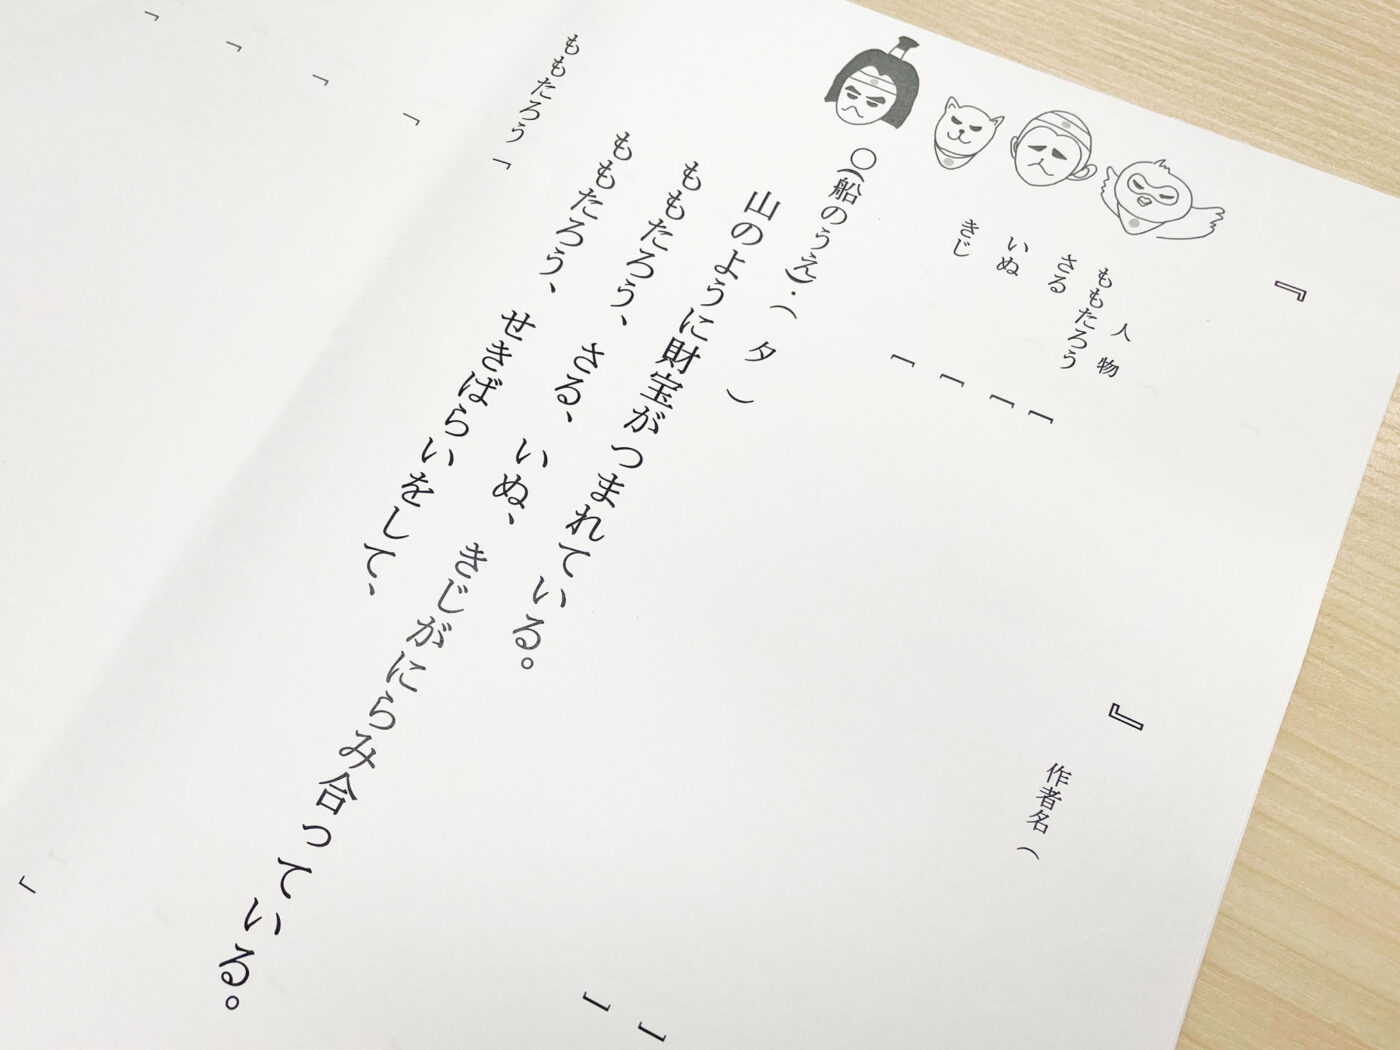 『　』
作者名（
人物
ももたろう［
さる［　］
いぬ［　］
きじ［
○（船のうえ）・（　夕　）
山のように財宝がつまれている。
ももたろう、さる、いぬ、きじがにらみ合っている。
ももたろう、せきばらいをして、
ももたろう「
「
「
「
「　」